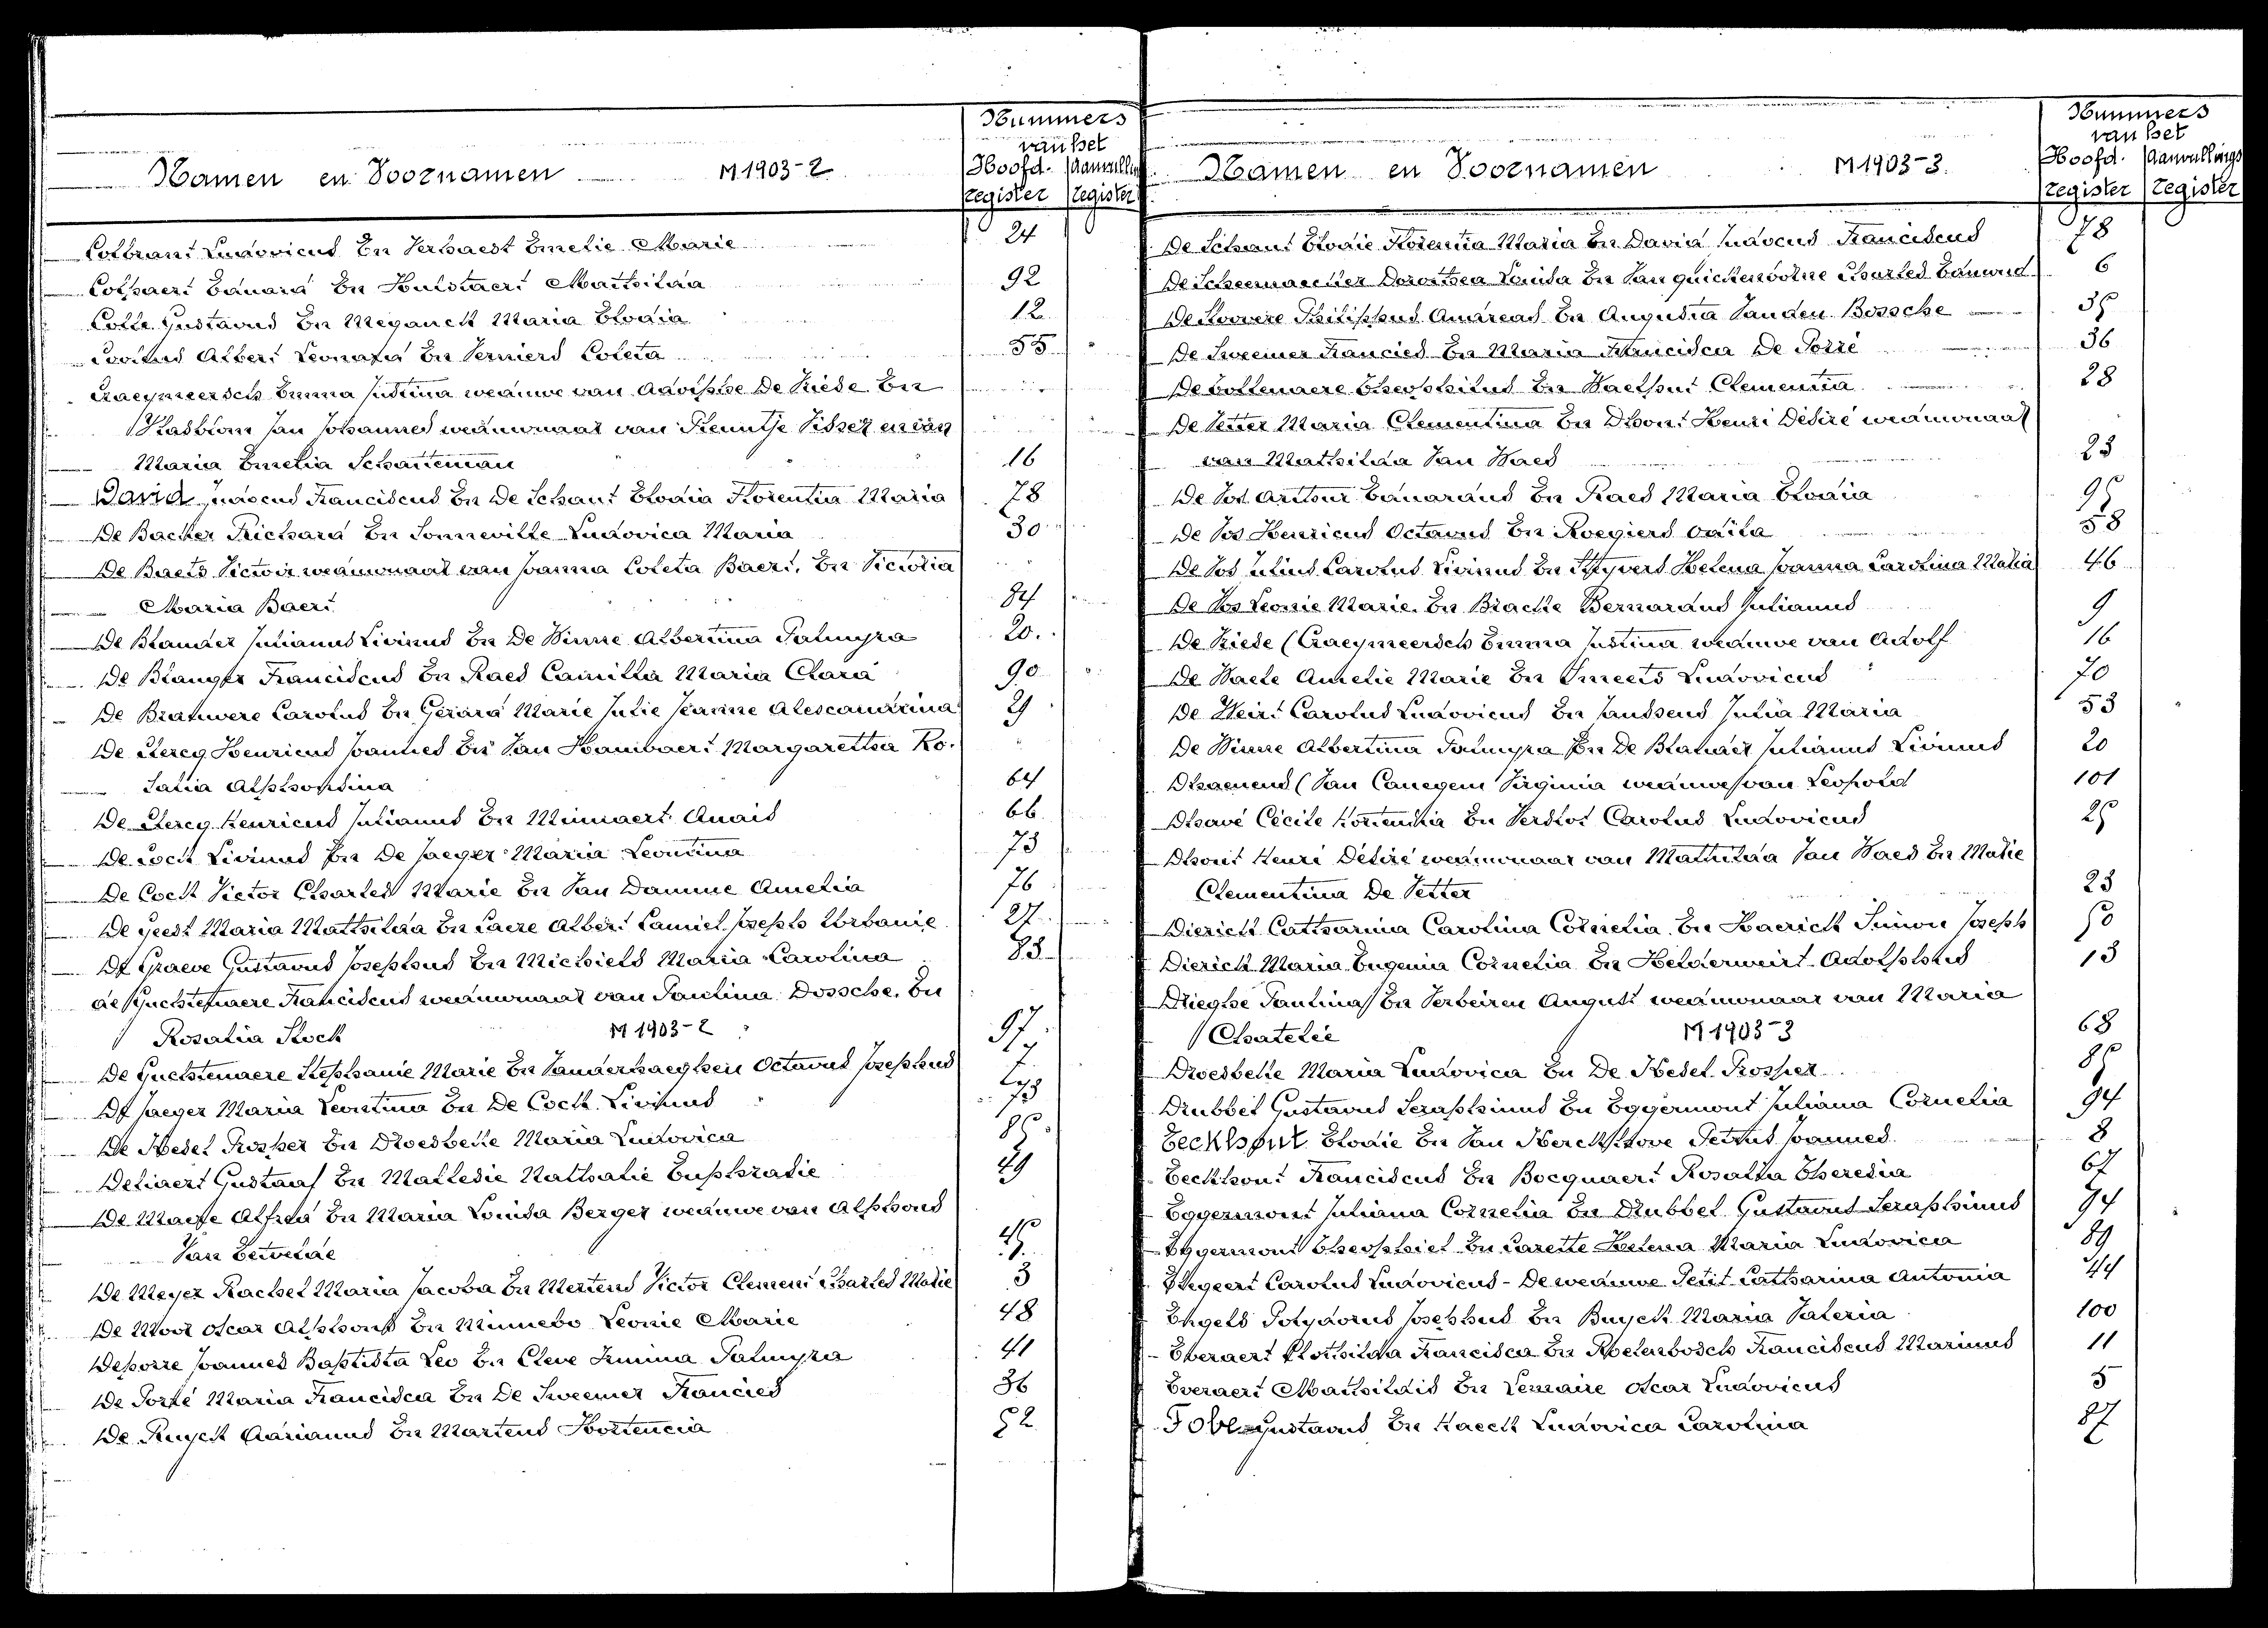 Namen en Voornamen M 1903-2
Nummers
van het
Hoofd. Aanvullings
register register
Colbrant Ludovicus En Verhaest Emelie Marie 24
Colpaert Eduard En Hulstaert Mathilda 92
Colle Gustavus En Meganck Maria Elodia 12
Albert Leonard En Verniers Coleta 55
Craeymeersch Emma Justina weduwe van Adolphe De Vriese En
Jan Johannes weduwnaar van Visser en van
Maria Emelia Schatteman 16
David Judocus Franciscus En De Schaut Elodia Florentia Maria 78
De Backer Richard En Sonneville Ludovica Maria 30
De Baets Victor weduwnaar van Joanna Coleta Baert. En Victoria
Maria Baert 84
De Blander Julianus Livinus En De Winne Albertina Palmyra 20.
De Blanger Franciscus En Raes Camilla Maria Clara 90
De Brauwere Carolus En Gerard Marie Julie Jeanne Alescandrina 29
De Clercq Henricus Joannes En Van Hauwaert Margaretha Ro.
salia Alphonsina 64
De Clercq Henricus Julianus En Minnaert Anais 66
De Cock Livinus En De Jaeger Maria Leontina 73
De Cock Victor Charles Marie En Van Damme Amelia 76
De Geest Maria Mathilda En Lacre Albert Camiel Joseph Urbanie 27
De Graeve Gustavus Josephus En Michiels Maria Carolina 83
de Guchtenaere Franciscus weduwnaar van Paulina Dossche. En
Rosalia Stock M 1903-2 97
De Guchtenaere Stephanie Marie En Vanderhaeghen Octavus Josephus 7
De Jaeger Maria Leontina En De Cock Livinus 73
De Kesel Prosper En Droesbeke Maria Ludovica 85
Deliaert Gustaaf En Mathalie Euphrasie 49
De Maeye Alfred En Maria Louisa Berger weduwe van Alphons
Van Betvelde 45
De Meyer Rachel Maria Jacoba En Mertens Victor Clement Charles Marie 3
De Moor Oscar Alphons En Minnebo Leonie Marie 48
Deporre Joannes Baptista Leo En Cleve Irmina Palmyra 41
De Porré Maria Francisca En De Sweemer Francies 36
De Ruyck Adrianus En Martens Hortencia 52
Namen en Voornamen M 1903-3.
Nummers
van het
Hoofd. Aanvullings
register register
De Schaut Elodie Florentia Maria En David Judocus Franciscus 78
De Scheemaecker Dorothea Louisa En Van quickenborne Charles Eduard 6
De Stovere Philippus Andreas En Augusta Vanden Bossche 35
De Sweemer Francies En Maria Francisca De Porré 36
De Cottenaere Theophilus En Waelput Clementia 28
De Vetter Maria Clementina En Dhont Henri Désiré weduwnaar
van Mathilda Van Waes 23
De Vos Arthur Eduardus En Raes Maria Elodia 95
De Vos Henricus Octavus En Roegiers Odila 58
De Vos Julius Carolus Livinus En Helena Joanna Carolina Maria 46
De Vos Leonie Marie. En Bracke Bernardus Julianus 9
De Vriese (Craeymeersch Emma Justina weduwe van Adolf 16
De Waele Amelie Marie En Smeets Ludovicus 70
De Weirt Carolus Ludovicus En Janssens Julia Maria 53
De Winne Albertina Palmyra En De Blander Julianus Livinus 20
Dhaenens (Van Canegem Virginia weduwe van Leopold 101
Dhavé Cécile Hortensia En Carolus Ludovicus 25
Dhont Henri Désiré weduwnaar van Mathilda Van Waes En Marie
Clementina De Vetter 23
Dierick Catharina Carolina Cornelia. En Haerick Simon Joseph 50
Dierick Maria Eugenia Cornelia En Helderweirt Adolphus 13
Drieghe Paulina En Verbeiren August weduwnaar van Maria
Chatelée M 1903-3 68
Droesbeke Maria Ludovica En De Kesel Prosper 85
Drubbel Gustavus Seraphinus En Eggermont Juliana Cornelia 94
Eeckhout Elodie En Van Kerckhove Petrus Joannes 8
Eeckhout Franciscus En Bocquaert Rosalia Theresia 67
Eggermont Juliana Cornelia En Drubbel Gustavus Seraphinus 94
Eggermont Theophiel En Carette Helena Maria Ludovica 89
Elegeert Carolus Ludovicus - De weduwe Petit Catharina Antonia 44
Engels Polydorus Josephus En Buyck Maria Valeria 100
Everaert Clothilda Francisca En Roelenbosch Franciscus Marinus 11
Everaert Mathildis En Lemaire Oscar Ludovicus 5
Fobe Gustavus En Haeck Ludovica Carolina 87